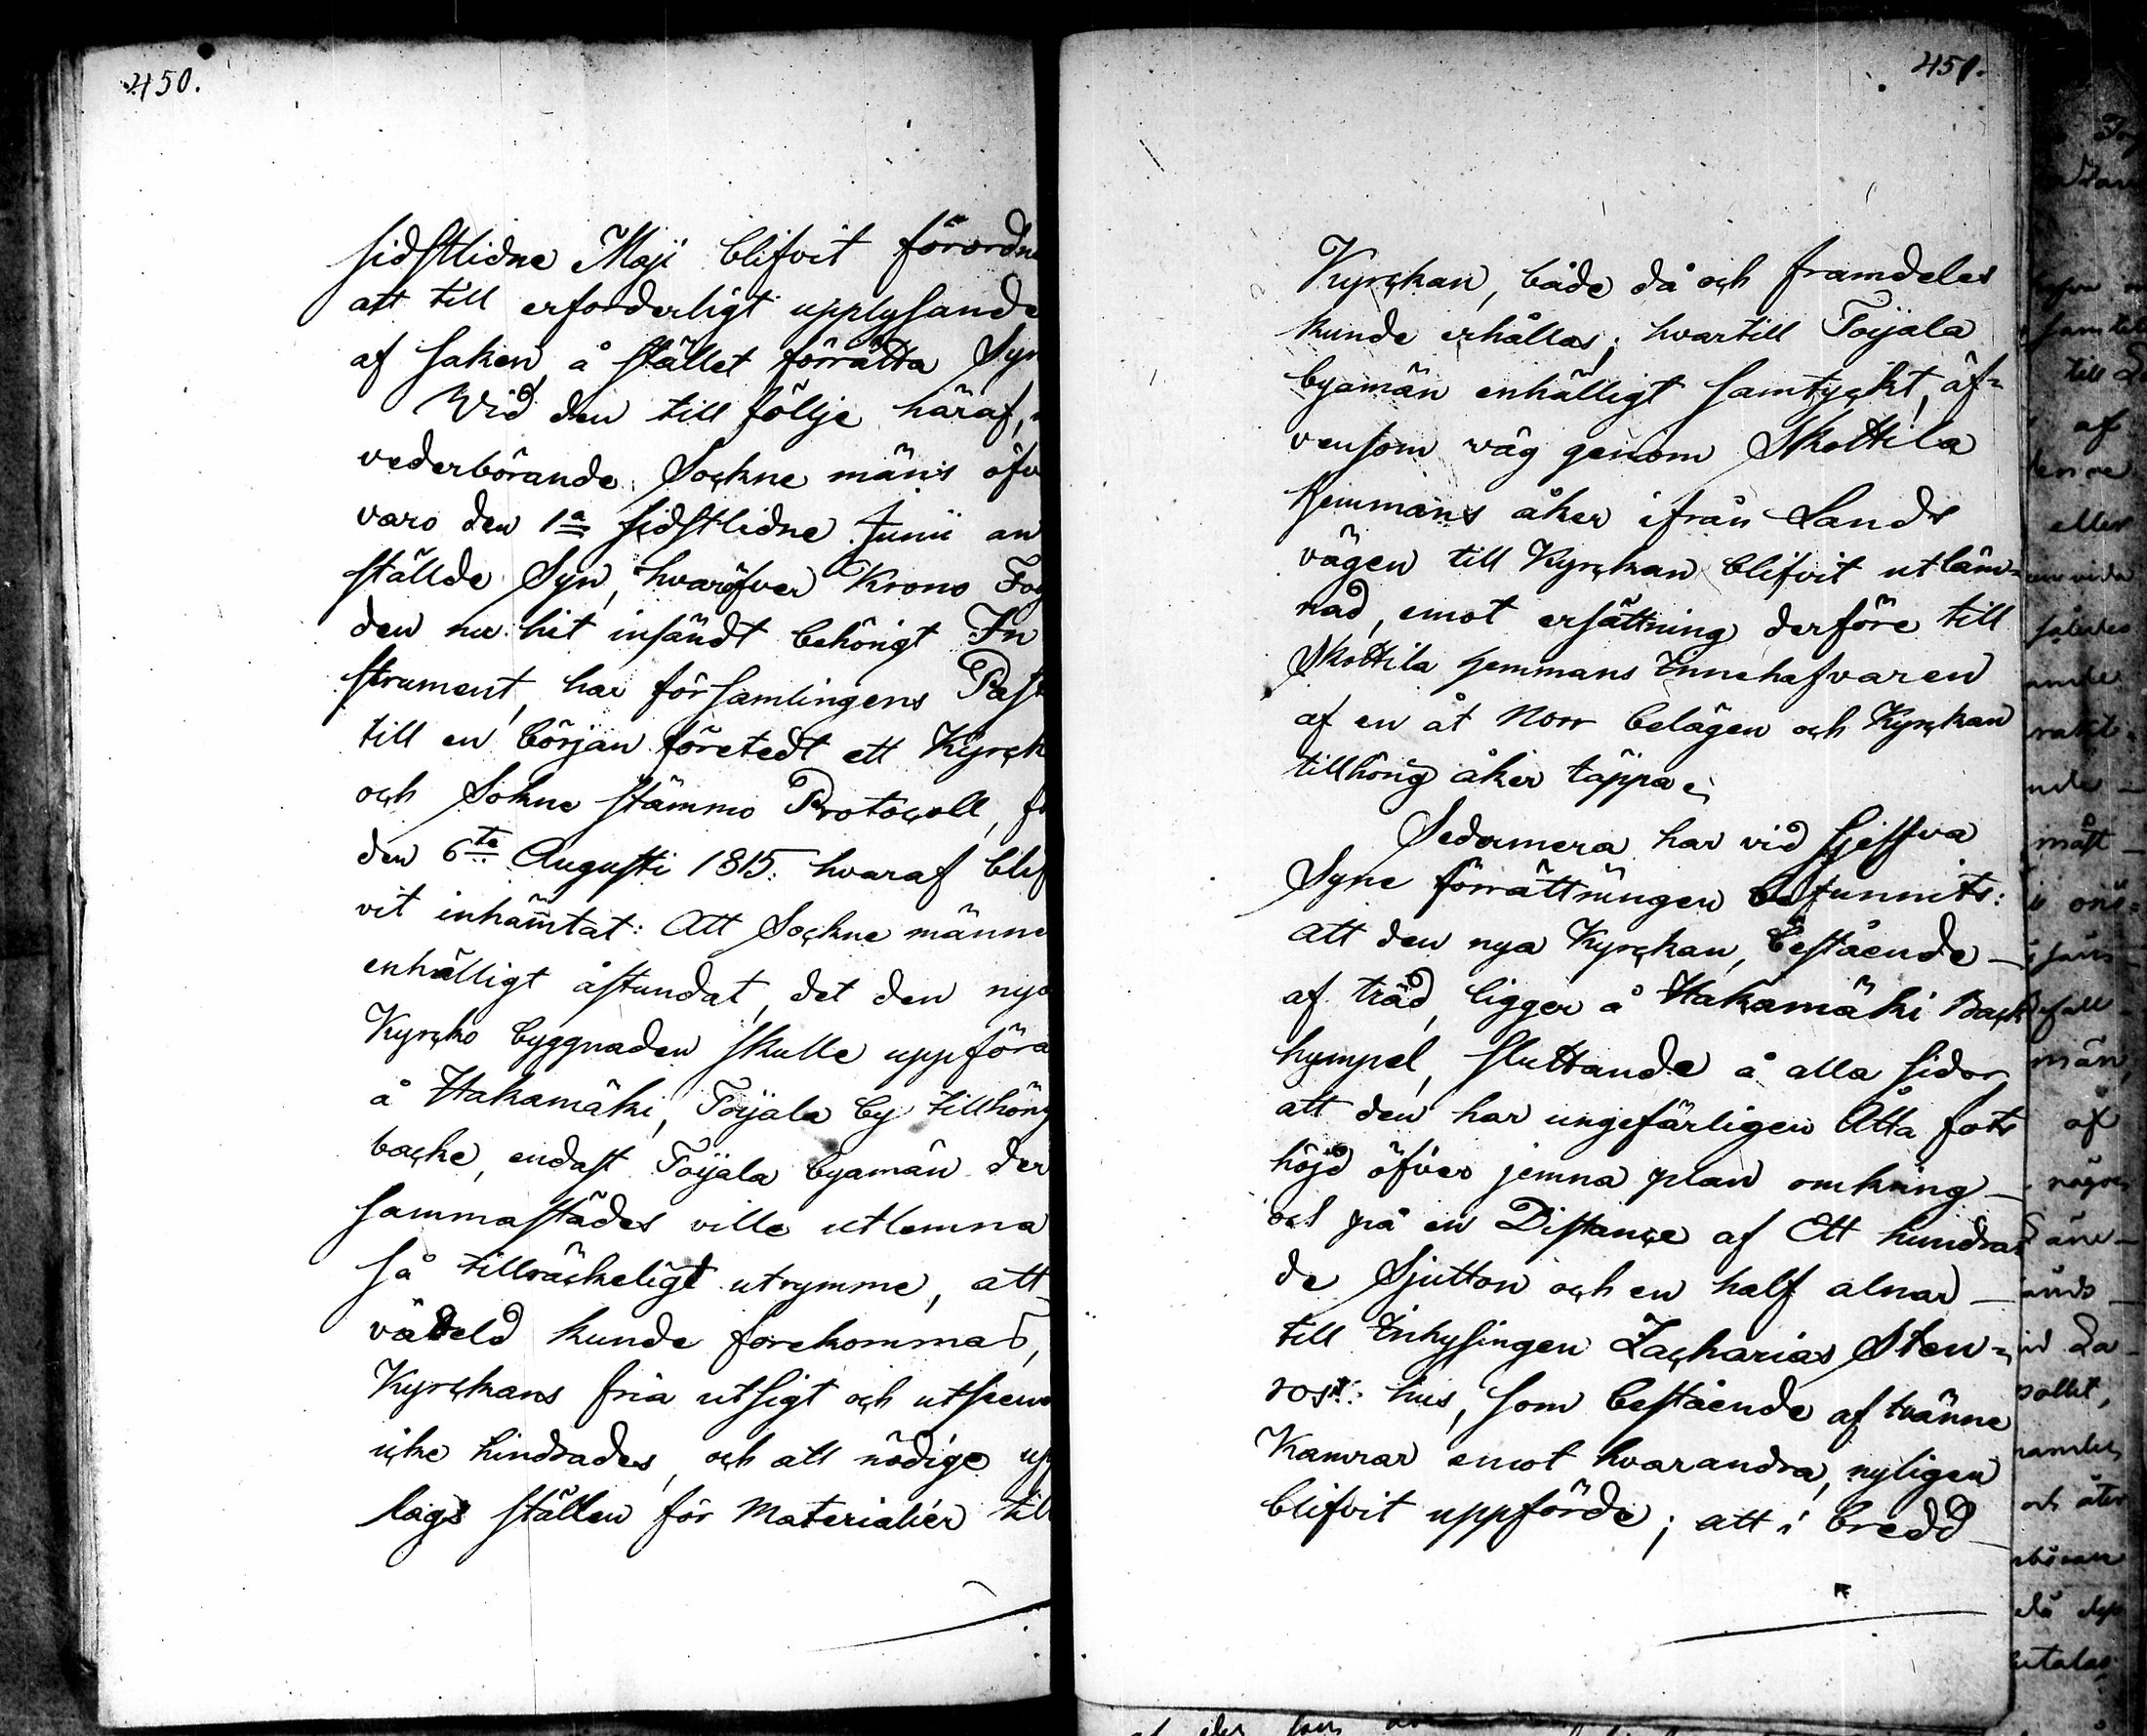 450.
sidstlidne Maji blifvit förordn
att till erforderligt upplysande
af saken å stället förrätta Syn
Wid den till följe häraf,
vederbörande Sockne mäns öfv
varo den 1a sidstlidne Junii an
ställde Syn, hvaröfver Krono Fog
den nu hit insändt behörigt In
strument, har församlingens Past
till en början företedt ett Kyrck
och Sokne stämmo Protocoll, f
den 6te Augusti 1815: hvaraf blif
vit inhämtat: Att Sockne männe
enhälligt åstundat, det den nya
Kyrcko byggnaden skulle uppföra
å Hakamäki, Toijala by tillhörig
backe, endast Toijala byamän der
sammastädes ville utlemna
så tillräckeligt utrymme, att
vådeld kunde förekommas,
Kyrckans fria utsigt och utseen
icke hindrades, och att nödige up
lags ställen för Materialier till
451.
Kyrckan, både då och framdeles
kunde erhållas; hvartill Toijala
byamän enhälligt samtyckt, äf=
vensom väg genom Skottila
Hemmans åker ifrån Lands
vägen till Kyrckan blifvit utläm=
nad, emot ersättning derföre till
Skottila Hemmans Innehafvaren
af en åt Norr belägen och Kyrckan
tillhörig åker täppa.
Sedermera har vid sjelfva
Syne förrättningen befunnits:
att den nya Kyrckan, bestående
af träd, ligger å Hakamäki Back
kympel, sluttande å alla sidor,
att den har ungefärligen Åtta fots
höjd öfver jemna plan omkring
och på en Distance af Ett hundra
de Sjutton och en half alnar
till Inhysingen Zacharias Sten=
ros: hus, som bestående af tvänne
Kamrar emot hvarandra, nyligen
blifvit uppförde; att i bredd